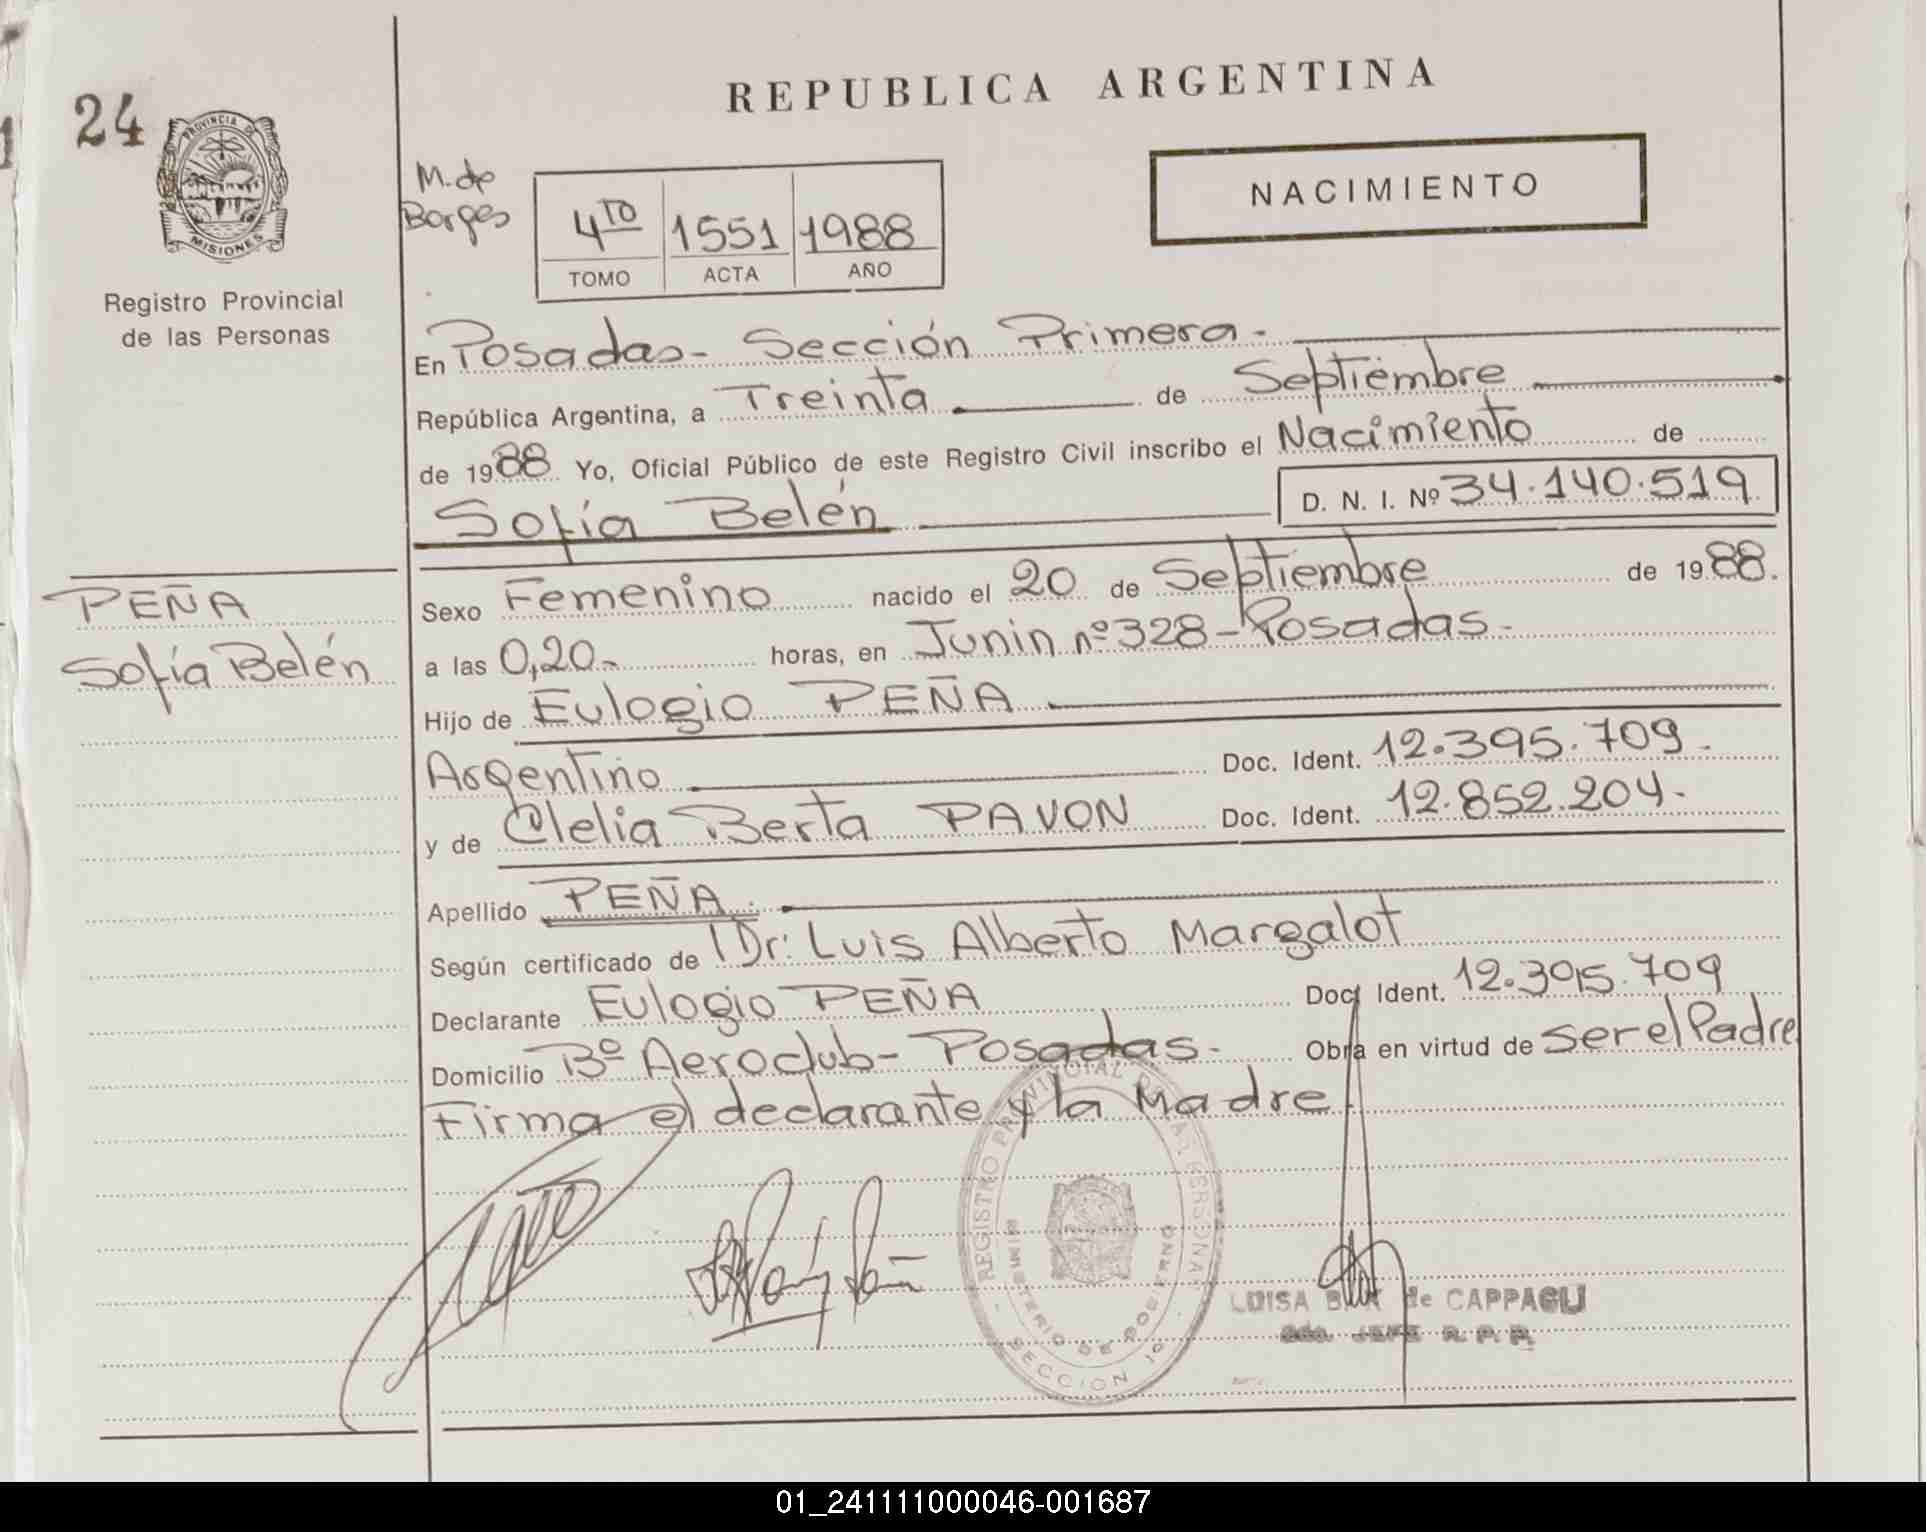 24
PROVINCIA DE
MISIONES
Registro Provincial
de las Personas
REPUBLICA ARGENTINA
NACIMIENTO
M. de
Borges
4TO 1551 1988
TOMO ACTA AÑO
En Posadas - Sección Primera -
República Argentina, a Treinta de Septiembre
de 1988 Yo, Oficial Público de este Registro Civil inscribo el Nacimiento de
Sofía Belén D. N. I. Nº 34.140.519
PEÑA
Sofía Belén
Sexo Femenino nacido el 20 de Septiembre de 1988.
a las 0,20- horas, en Junin nº 328 - Posadas -
Hijo de Eulogio PEÑA
Argentino Doc. Ident. 12.395.709 -
y de Clelia Berta PAVON Doc. Ident. 12.852.204 -
Apellido PEÑA.
Según certificado de Dr: Luis Alberto Margalot
Declarante Eulogio PEÑA Doc. Ident. 12.395.709
Domicilio Bº Aeroclub - Posadas - Obra en virtud de ser el Padre
Firma el declarante y la Madre
REGISTRO PROVINCIAL DE LAS PERSONAS
MINISTERIO DE GOBIERNO
SECCION 1º
LUISA de CAPPAGLI
2do. JEFE R. P. P.
01_241111000046-001687